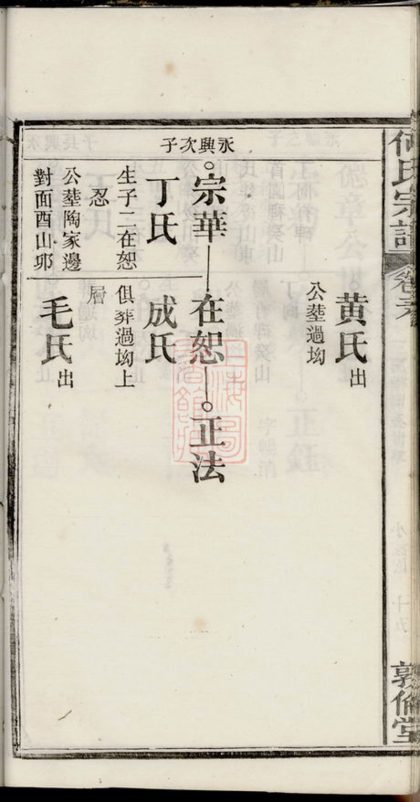 何氏宗譜
卷六
敦倫堂
黃氏出
公葬過坳
永興次子
宗華
在恕
正法
丁氏
成氏
生子二在恕
忍
俱葬過坳上
層
公葬陶家邊
對面酉山卯
毛氏出